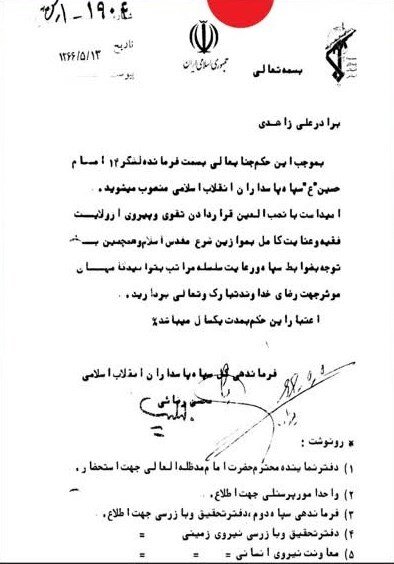 شماره ۱۹۰۴-۱/
تاریخ ۱۳۶۶/۵/۱۳
پیوست
جمهوری اسلامی ایران
بسمه تعالی
برادر علی زاهدی
بموجب این حکم جنابعالی بسمت فرمانده لشگر ۱۴ امام
حسین "ع" سپاه پاسداران انقلاب اسلامی منصوب میشوید .
امید است با نصب العین قرار دادن تقوی و پیروی از ولایت
فقیه و عنایت کامل بموازین شرع مقدس اسلام و همچنین با
توجه بضوابط سپاه و رعایت سلسله مراتب بتوانید گامهای
موثر جهت رضای خداوند تبارک و تعالی بردارید .
اعتبار این حکم بمدت یکسال میباشد %
فرماندهی کل سپاه پاسداران انقلاب اسلامی
محسن رضائی
* رونوشت :
۱) دفتر نماینده محترم حضرت امام مدظله العالی جهت استحضار .
۲) واحد امور پرسنلی جهت اطلاع .
۳) فرماندهی سپاه دوم ، دفتر تحقیق و بازرسی جهت اطلاع .
۴) دفتر تحقیق و بازرسی نیروی زمینی =
۵) معاونت نیروی انسانی = = =